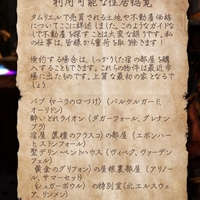 利用可能な住居総覧
タムリエルで売買される土地や不動産価格
についてここに詳述しました。このようなガイドな
くして不動産を探すことは大変な誤りです。私
の仕事は、皆様から重荷を取り除きます!
検討する場合は、しっかりした宿の部屋も購
入することもできます。これらの物件は最近市
場に出たものです。上質な最初の家となるでし
ょう
パブ〈セーラの口づけ〉(バルケルガード、
オーリドン)
酔いどれライオン(ダガーフォール、グレナン
ブラ)
宿屋〈黒檀のフラスコ〉の部屋(エボンハー
ト、ストンフォール)
聖デリン・ペントハウス(ヴィベク、ヴァーデン
フェル)
黄金のグリフォンの屋根裏部屋(アリノー
ル、サマーセット)
〈シュガーボウル〉の特別室(北エルスウェ
ア、リンメン)